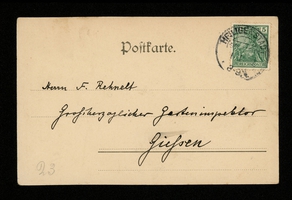 Postkarte.
Herrn F. Rehnelt
Großherzoglicher Garteninspektor
Giessen
23